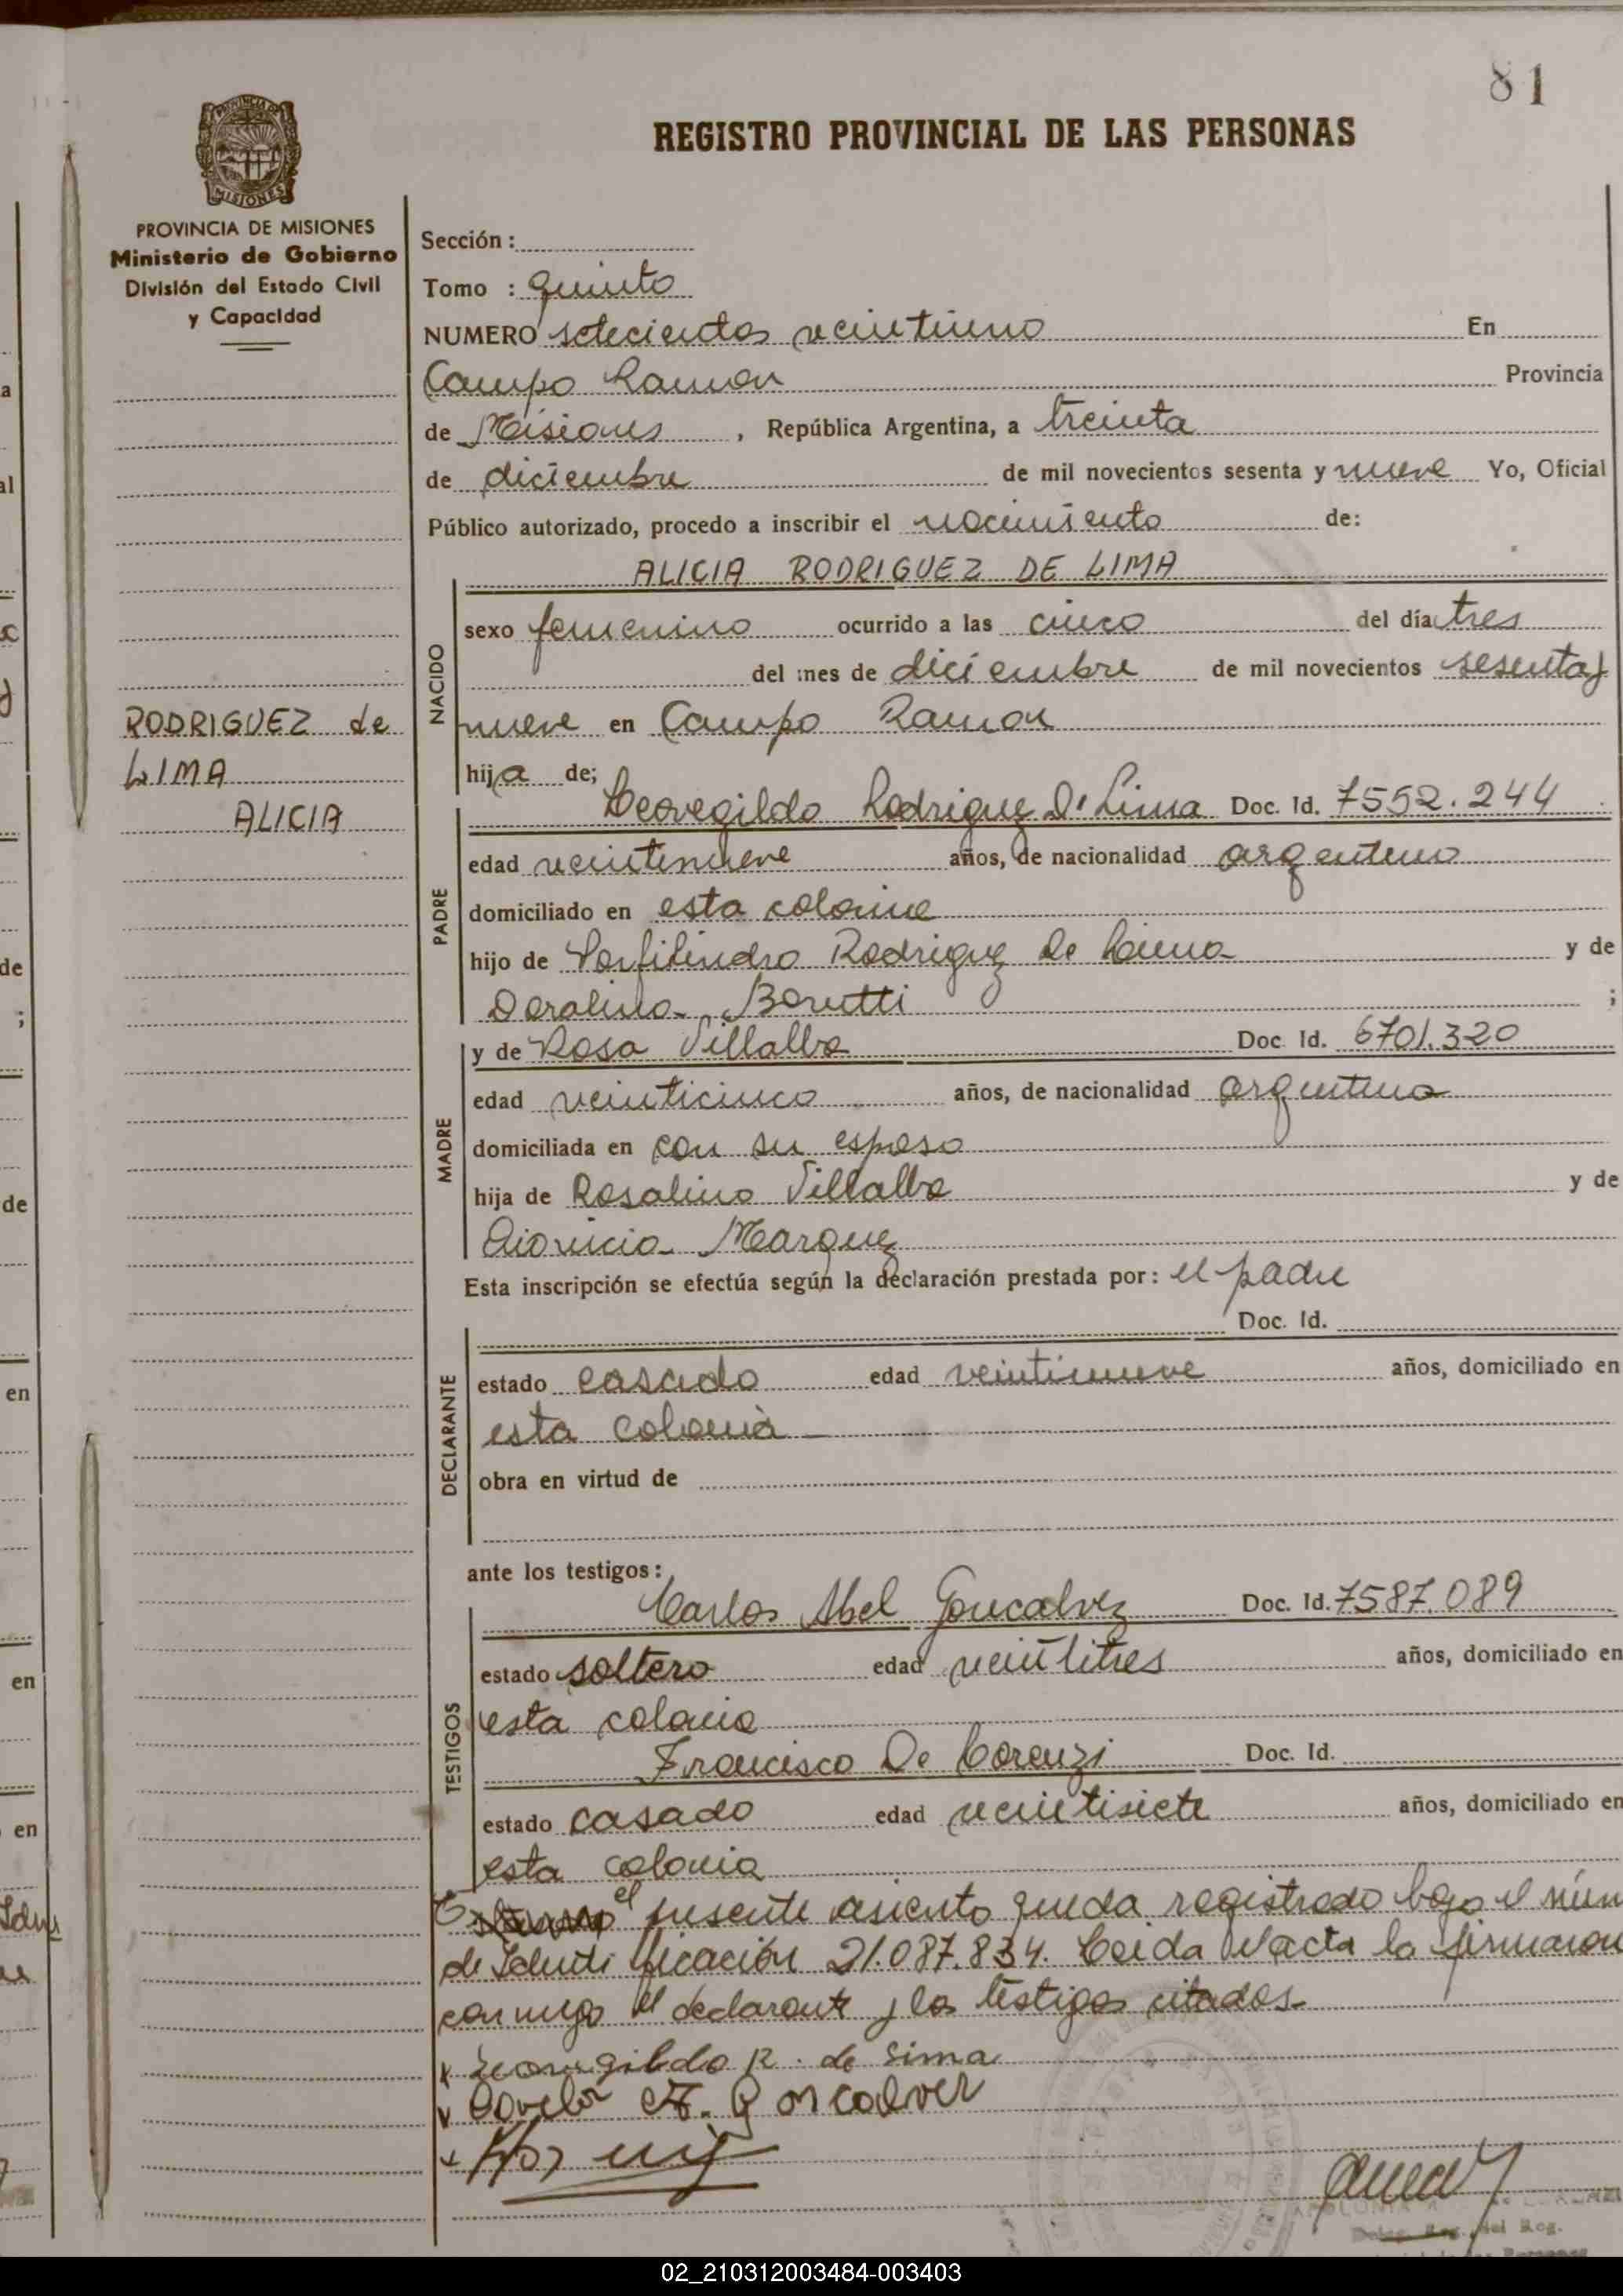 81
REGISTRO PROVINCIAL DE LAS PERSONAS
MISIONES
PROVINCIA DE MISIONES
Ministerio de Gobierno
División del Estado Civil
y Capacidad
Sección :
Tomo : quinto
NUMERO setecientos veintiuno En
Campo Ramon Provincia
de Misiones , República Argentina, a treinta
de diciembre de mil novecientos sesenta y nueve Yo, Oficial
Público autorizado, procedo a inscribir el nacimiento de:
ALICIA RODRIGUEZ DE LIMA
NACIDO
sexo femenino ocurrido a las cinco del día tres
del mes de diciembre de mil novecientos sesenta y
nueve en Campo Ramon
RODRIGUEZ de
LIMA
ALICIA
hija de;
PADRE
Leovegildo Rodriguez De Lima Doc. Id. 7552.244
edad veintinueve años, de nacionalidad argentino
domiciliado en esta colonia
hijo de Rodriguez De Lima y de
Doralina ;
MADRE
y de Rosa Villalba Doc. Id. 6701.320
edad veinticinco años, de nacionalidad argentina
domiciliada en con su esposo
hija de Rosalino Villalba y de
Dionicia Marquez
Esta inscripción se efectúa según la declaración prestada por: el padre
DECLARANTE
Doc. Id.
estado casado edad veintinueve años, domiciliado en
esta colonia
obra en virtud de
ante los testigos:
TESTIGOS
Carlos Abel Goncalvez Doc. Id. 7587.089
estado soltero edad veintitres años, domiciliado en
esta colonia
Francisco De Lorenzi Doc. Id.
estado casado edad veintisiete años, domiciliado en
esta colonia
el presente asiento queda registrado bajo el núm
de Identificación 21.087.834. Leida el acta la firmaron
conmigo el declarante y los testigos citados.
x Leovegildo R. de Lima
Goncalvez
del Reg.
02_210312003484-003403